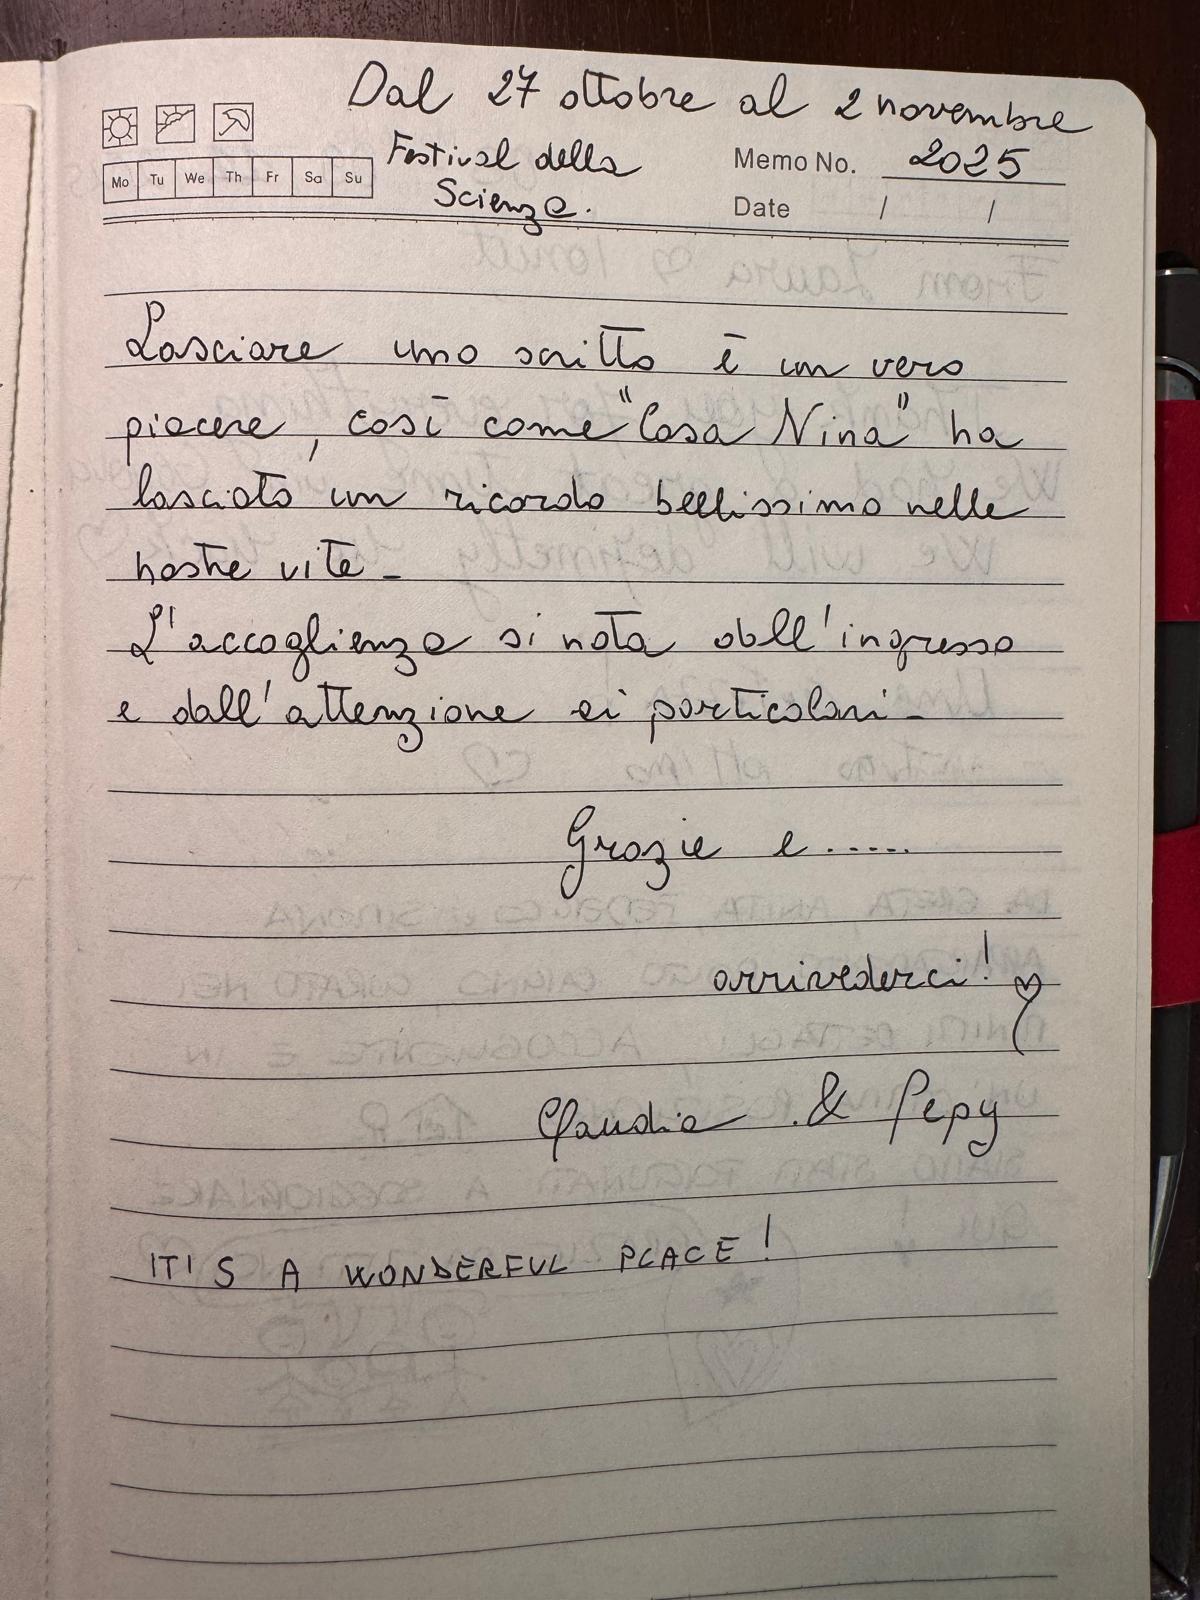 Dal 27 ottobre al 2 novembre
Festival della
Scienza.
Memo No. 2025
Mo Tu We Th Fr Sa Su
Date / /
Lasciare uno scritto è un vero
piacere, così come "Casa Nina" ha
lasciato un ricordo bellissimo nelle
nostre vite -
L'accoglienza si nota dall'ingresso
e dall'attenzione ai particolari -
Grazie e .....
arrivederci!
Claudia & Pepy
IT'S A WONDERFUL PLACE!